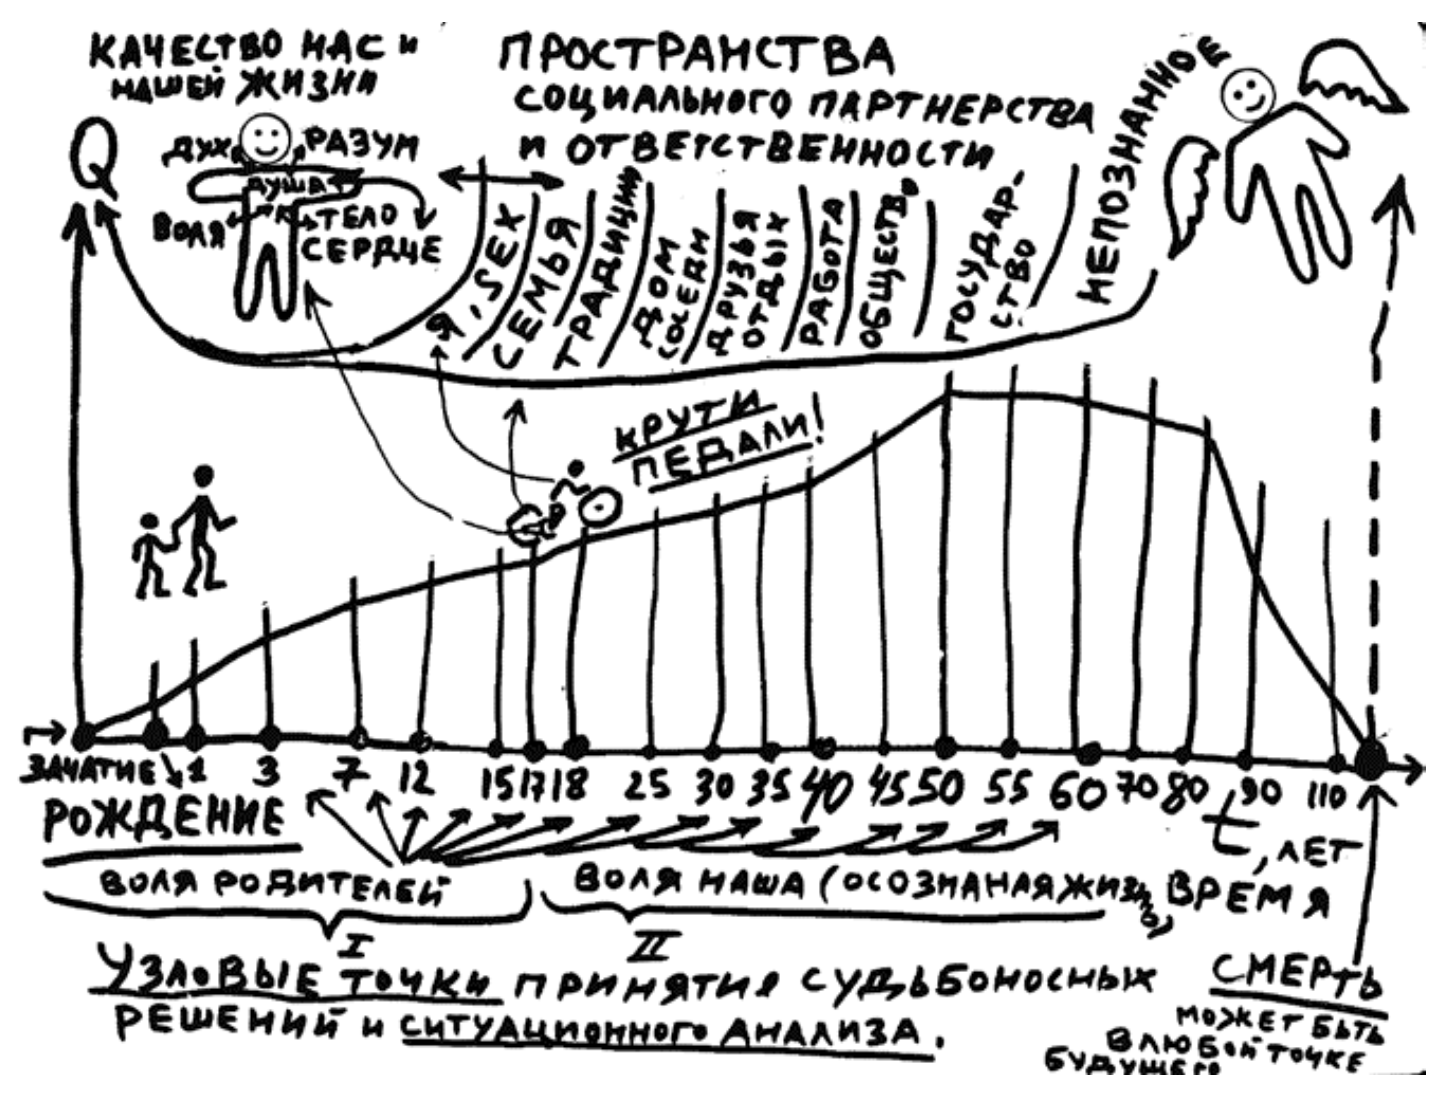 КАЧЕСТВО НАС и
НАШЕЙ ЖИЗНИ
ПРОСТРАНСТВА
СОЦИАЛЬНОГО ПАРТНЕРСТВА
И ОТВЕТСТВЕННОСТИ
Q
ДУХ
РАЗУМ
ДУША
ВОЛЯ
ТЕЛО
СЕРДЦЕ
Я, SEX
СЕМЬЯ
ТРАДИЦИИ
ДОМ
СОСЕДИ
ДРУЗЬЯ
ОТДЫХ
РАБОТА
ОБЩЕСТВО
ГОСУДАР-
СТВО
НЕПОЗНАННОЕ
КРУТИ
ПЕДАЛИ!
ЗАЧАТИЕ 1 3 7 12 15 17 18 25 30 35 40 45 50 55 60 70 80 90 110
РОЖДЕНИЕ
t, ЛЕТ
ВОЛЯ РОДИТЕЛЕЙ
ВОЛЯ НАША (ОСОЗНАНАЯ ЖИЗНЬ)
ВРЕМЯ
I
II
УЗЛОВЫЕ ТОЧКИ ПРИНЯТИЯ СУДЬБОНОСНЫХ
РЕШЕНИЙ и СИТУАЦИОННОГО АНАЛИЗА.
СМЕРТЬ
МОЖЕТ БЫТЬ
В ЛЮБОЙ ТОЧКЕ
БУДУЩЕГО